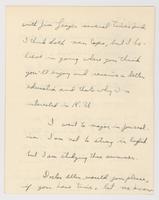 with Jim Yeager several times and
I think both are tops, but I be-
lieve in going where you think
you'll enjoy and receive a better
education and that's why I'm
interested in N.U.
I want to major in journal-
ism. I am not so strong in English
but I am studying this summer.
Doctor Allen would you please,
if you have time, let me know